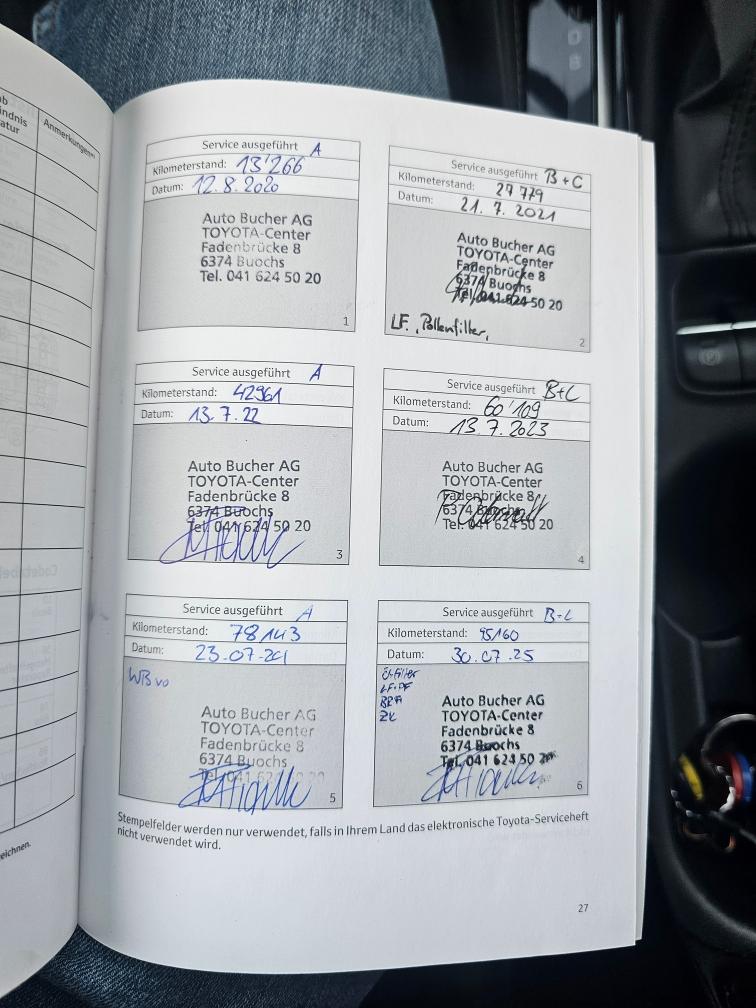 ndnis
atur
Anmerkungen
Service ausgeführt A
Kilometerstand: 13'266
Datum: 12.8.2020
Auto Bucher AG
TOYOTA-Center
Fadenbrücke 8
6374 Buochs
Tel. 041 624 50 20
1
Service ausgeführt B+C
Kilometerstand: 27 779
Datum: 21. 7. 2021
Auto Bucher AG
TOYOTA-Center
Fadenbrücke 8
6374 Buochs
Tel. 041 624 50 20
LF., Pollenfilter,
2
Service ausgeführt A
Kilometerstand: 42961
Datum: 13.7.22
Auto Bucher AG
TOYOTA-Center
Fadenbrücke 8
6374 Buochs
Tel. 041 624 50 20
3
Service ausgeführt B+C
Kilometerstand: 60'109
Datum: 13.7.2023
Auto Bucher AG
TOYOTA-Center
Fadenbrücke 8
6374 Buochs
Tel. 041 624 50 20
4
Service ausgeführt A
Kilometerstand: 78143
Datum: 23.07.24
WB vo
Auto Bucher AG
TOYOTA-Center
Fadenbrücke 8
6374 Buochs
Tel. 041 624 50 20
5
Service ausgeführt B+C
Kilometerstand: 95160
Datum: 30.07.25
Öl-Filter
LF+PF
ZK
Auto Bucher AG
TOYOTA-Center
Fadenbrücke 8
6374 Buochs
Tel. 041 624 50 20
6
Stempelfelder werden nur verwendet, falls in Ihrem Land das elektronische Toyota-Serviceheft
nicht verwendet wird.
eichnen.
27